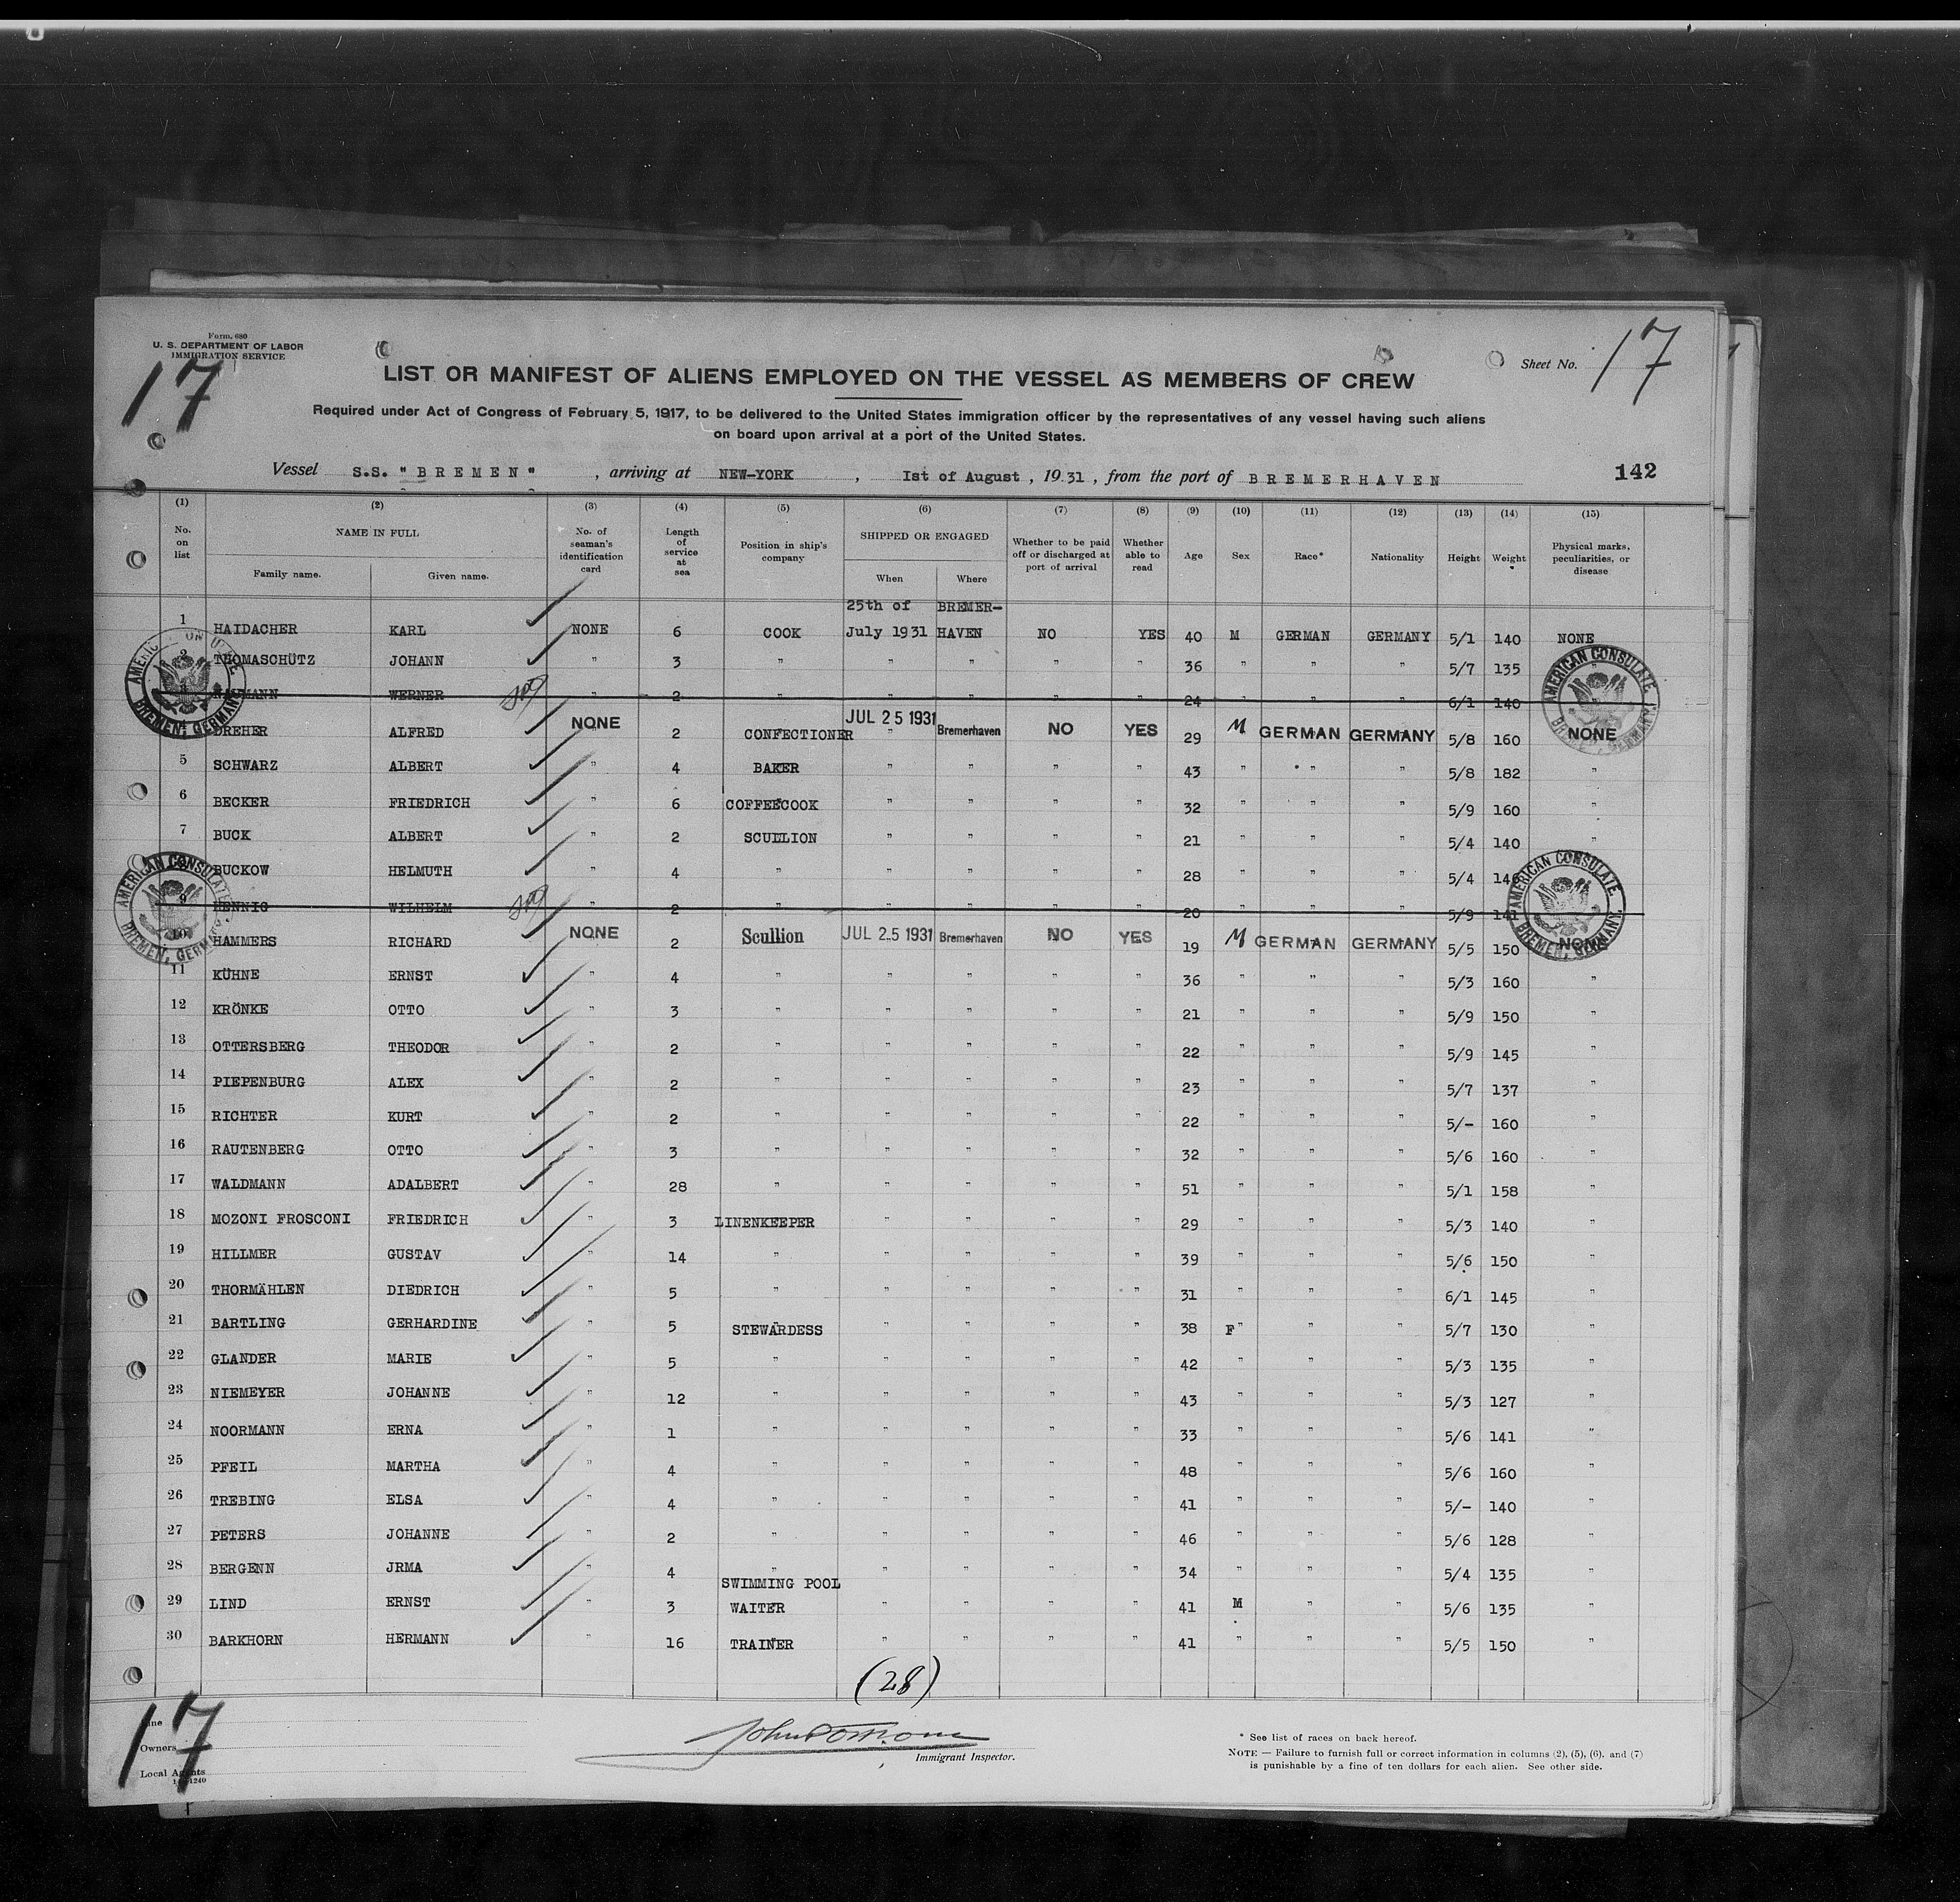 Form. 680
U. S. DEPARTMENT OF LABOR
IMMIGRATION SERVICE
17
Sheet No. 17
LIST OR MANIFEST OF ALIENS EMPLOYED ON THE VESSEL AS MEMBERS OF CREW
Required under Act of Congress of February 5, 1917, to be delivered to the United States immigration officer by the representatives of any vessel having such aliens
on board upon arrival at a port of the United States.
Vessel S.S. "BREMEN", arriving at NEW-YORK, 1st of August, 1931, from the port of BREMERHAVEN 142
(1) (2) (3) (4) (5) (6) (7) (8) (9) (10) (11) (12) (13) (14) (15)
No. on list NAME IN FULL Family name. Given name. No. of seaman's identification card Length of service at sea Position in ship's company SHIPPED OR ENGAGED When Where Whether to be paid off or discharged at port of arrival Whether able to read Age Sex Race* Nationality Height Weight Physical marks, peculiarities, or disease
25th of BREMER-
1 HAIDACHER KARL NONE 6 COOK July 1931 HAVEN NO YES 40 M GERMAN GERMANY 5/1 140 NONE
2 THOMASCHÜTZ JOHANN " 3 " " " " " 36 " " " 5/7 135 "
3 WERNER " 2 " " " " " 24 " " " 6/1 140
4 DREHER ALFRED NONE 2 CONFECTIONER JUL 25 1931 Bremerhaven NO YES 29 M GERMAN GERMANY 5/8 160 NONE
5 SCHWARZ ALBERT " 4 BAKER " " " " 43 " " " 5/8 182 "
6 BECKER FRIEDRICH " 6 COFFEECOOK " " " " 32 " " " 5/9 160 "
7 BUCK ALBERT " 2 SCULLION " " " " 21 " " " 5/4 140 "
BUCKOW HELMUTH " 4 " " " " " 28 " " " 5/4 146
9 HENNIG WILHELM " 2 " " " " " 20 " " " 5/9 141
10 HAMMERS RICHARD NONE 2 Scullion JUL 25 1931 Bremerhaven NO YES 19 M GERMAN GERMANY 5/5 150 NONE
11 KÜHNE ERNST " 4 " " " " " 36 " " " 5/3 160 "
12 KRÖNKE OTTO " 3 " " " " " 21 " " " 5/9 150 "
13 OTTERSBERG THEODOR " 2 " " " " " 22 " " " 5/9 145 "
14 PIEPENBURG ALEX " 2 " " " " " 23 " " " 5/7 137 "
15 RICHTER KURT " 2 " " " " " 22 " " " 5/- 160 "
16 RAUTENBERG OTTO " 3 " " " " " 32 " " " 5/6 160 "
17 WALDMANN ADALBERT " 28 " " " " " 51 " " " 5/1 158 "
18 MOZONI FROSCONI FRIEDRICH " 3 LINENKEEPER " " " " 29 " " " 5/3 140 "
19 HILLMER GUSTAV " 14 " " " " " 39 " " " 5/6 150 "
20 THORMÄHLEN DIEDRICH " 5 " " " " " 31 " " " 6/1 145 "
21 BARTLING GERHARDINE " 5 STEWARDESS " " " " 38 F " " " 5/7 130 "
22 GLANDER MARIE " 5 " " " " " 42 " " " 5/3 135 "
23 NIEMEYER JOHANNE " 12 " " " " " 43 " " " 5/3 127 "
24 NOORMANN ERNA " 1 " " " " " 33 " " " 5/6 141 "
25 PFEIL MARTHA " 4 " " " " " 48 " " " 5/6 160 "
26 TREBING ELSA " 4 " " " " " 41 " " " 5/- 140 "
27 PETERS JOHANNE " 2 " " " " " 46 " " " 5/6 128 "
28 BERGENN JRMA " 4 " " " " " 34 " " " 5/4 135 "
SWIMMING POOL
29 LIND ERNST " 3 WAITER " " " " 41 M " " 5/6 135 "
30 BARKHORN HERMANN " 16 TRAINER " " " " 41 " " " 5/5 150 "
AMERICAN CONSULATE BREMEN, GERMANY.
AMERICAN CONSULATE BREMEN, GERMANY.
(28)
17
Owners
Local Agents
Immigrant Inspector.
* See list of races on back hereof.
NOTE — Failure to furnish full or correct information in columns (2), (5), (6), and (7)
is punishable by a fine of ten dollars for each alien. See other side.